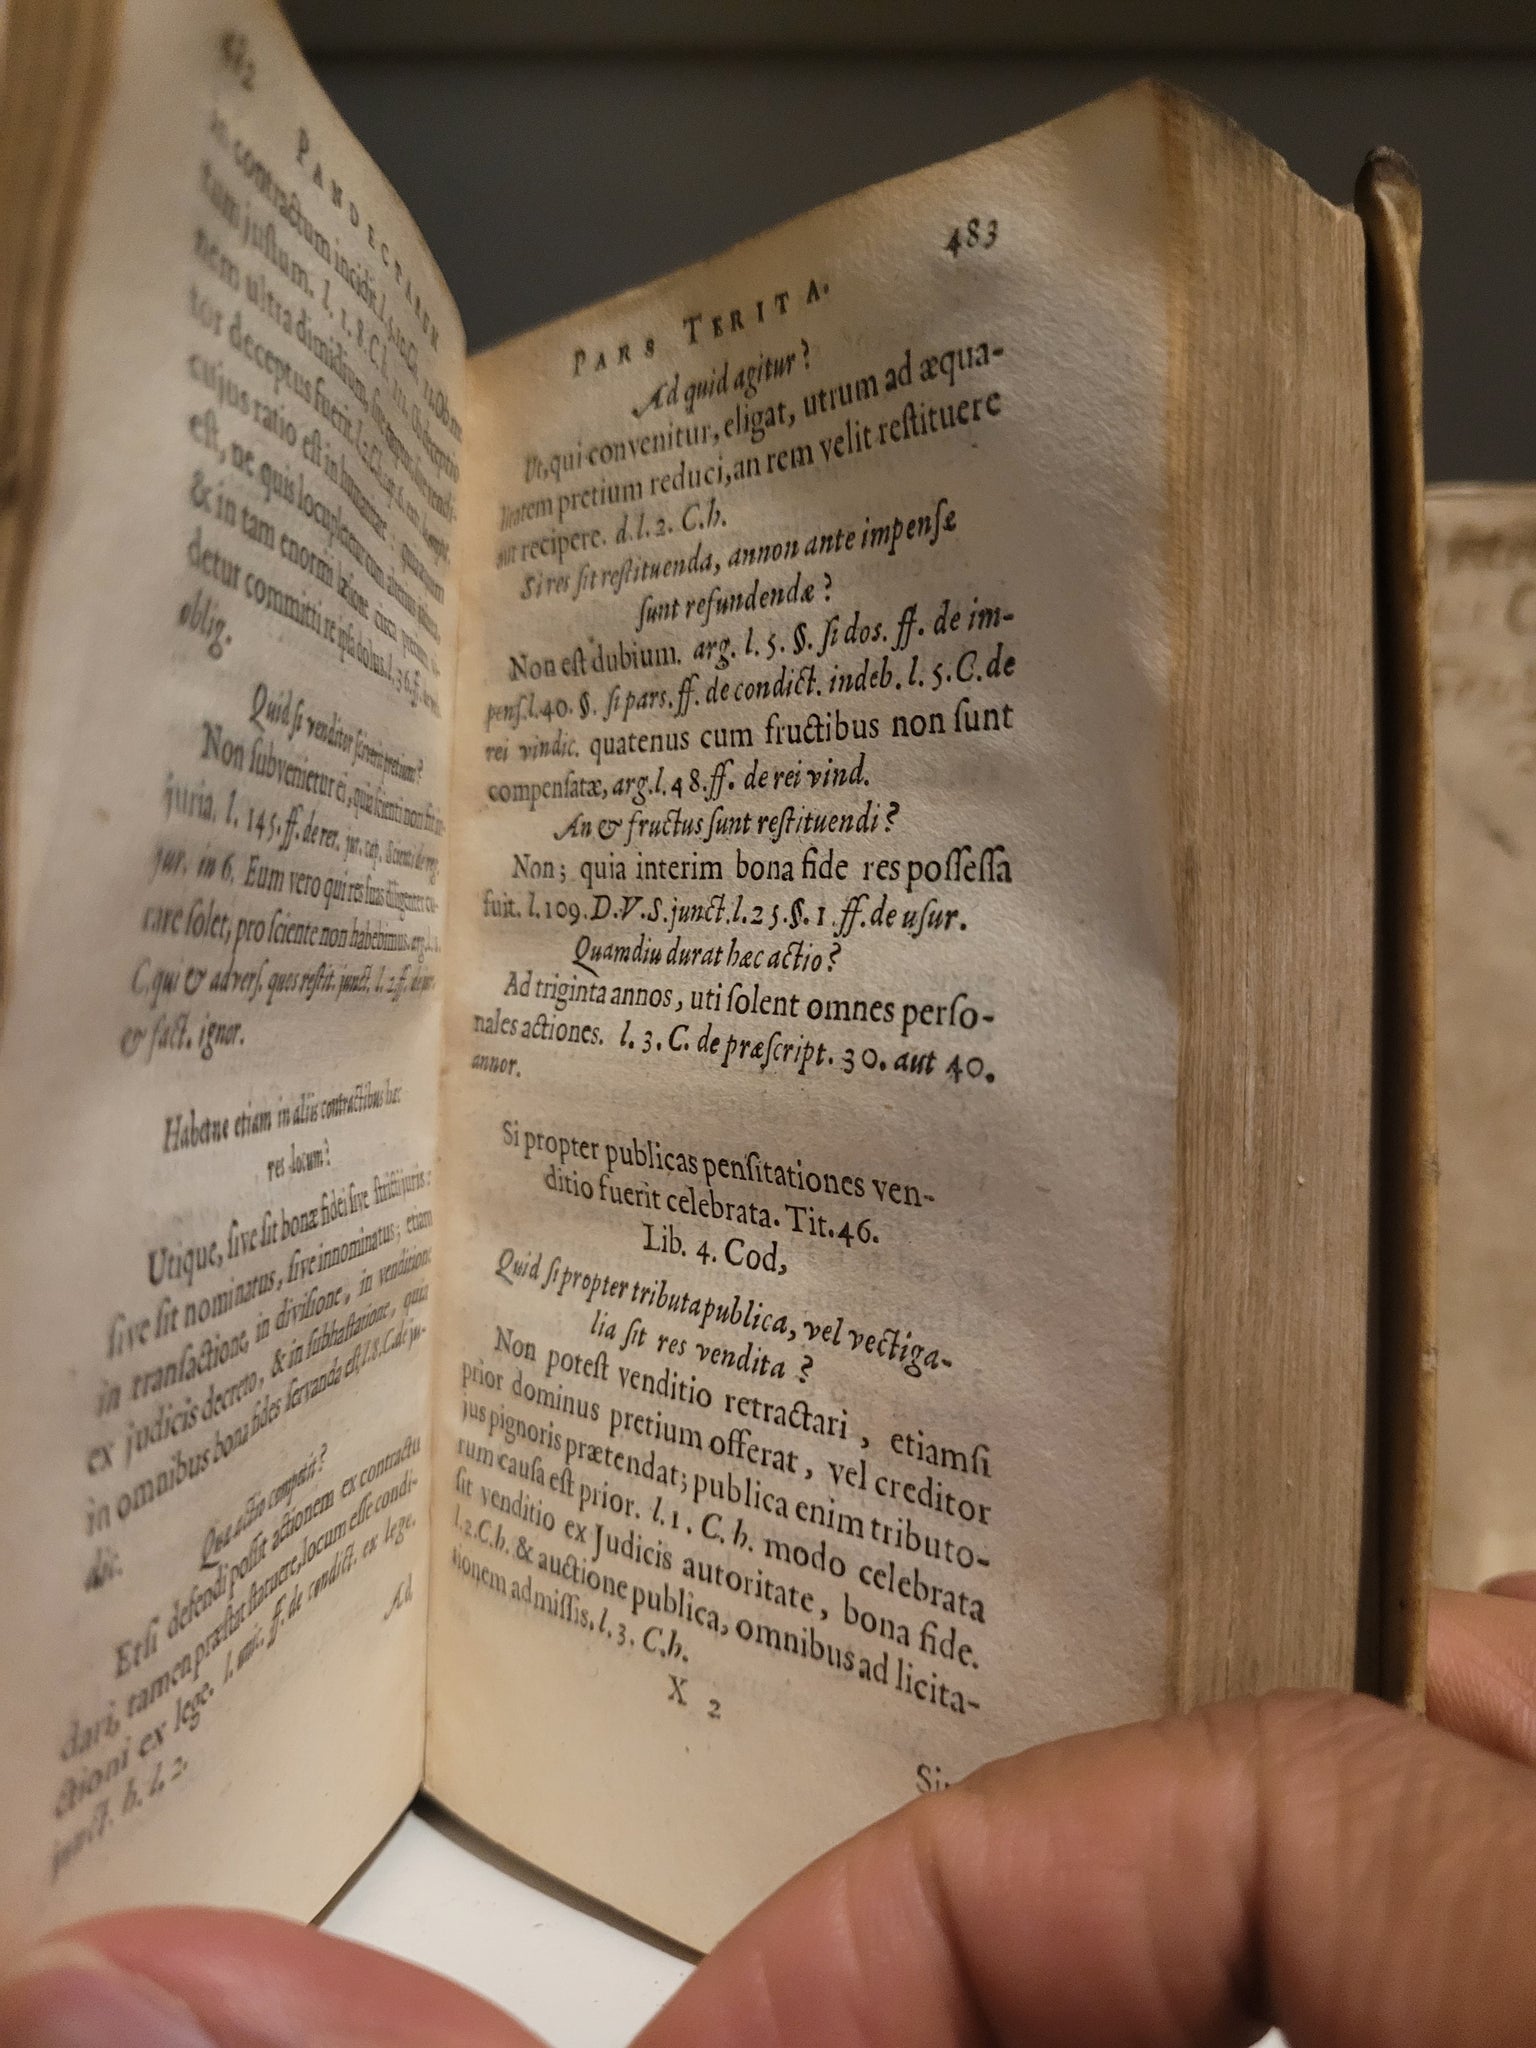 482
PANDECTARUM
contractum incidit
tum justum. l. 1. 8. C. h.
nem ultra dimidium,
tor deceptus fuerit.
cujus ratio est in
est, ne quis locupletetur cum
& in tam enormi læsione circa
detur committi re ipsa dolus. l. 36. ff.
oblig.
Quid si venditor sciverit pretium?
Non subvenietur ei, quia scienti non fit in-
juria. l. 145. ff. de reg. jur. cap. scienti de reg.
jur. in 6. Eum vero qui res suas diligenter cu-
rare solet, pro sciente non habebimus. arg. l.
C. qui & advers. quos restit. junct. l. 2. ff. de jur.
& fact. ignor.
Habetne etiam in aliis contractibus hæc
res locum?
Utique, sive sit bonæ fidei sive stricti juris:
sive sit nominatus, sive innominatus; etiam
in transactione, in divisione, in venditione
ex judicis decreto, & in subhastatione, quia
in omnibus bona fides servanda est. l. 8. C. de ju-
dic.
Quæ actio competit?
Etsi defendi possit actionem ex contractu
dari, tamen præstat statuere, locum esse condi-
ctioni ex lege. l. unic. ff. de condict. ex lege.
junct. h. l. 2.
Ad
PARS TERITA. 483
Ad quid agitur?
Ut, qui convenitur, eligat, utrum ad æqua-
litatem pretium reduci, an rem velit restituere
aut recipere. d. l. 2. C. h.
Si res sit restituenda, annon ante impensæ
sunt refundendæ?
Non est dubium. arg. l. 5. §. si dos. ff. de im-
pens. l. 40. §. si pars. ff. de condict. indeb. l. 5. C. de
rei vindic. quatenus cum fructibus non sunt
compensatæ, arg. l. 48. ff. de rei vind.
An & fructus sunt restituendi?
Non; quia interim bona fide res possessa
fuit. l. 109. D. V. S. junct. l. 25. §. 1. ff. de usur.
Quamdiu durat hæc actio?
Ad triginta annos, uti solent omnes perso-
nales actiones. l. 3. C. de præscript. 30. aut 40.
annor.
Si propter publicas pensitationes ven-
ditio fuerit celebrata. Tit. 46.
Lib. 4. Cod,
Quid si propter tributa publica, vel vectiga-
lia sit res vendita?
Non potest venditio retractari, etiamsi
prior dominus pretium offerat, vel creditor
jus pignoris prætendat; publica enim tributo-
rum causa est prior. l. 1. C. h. modo celebrata
sit venditio ex Judicis autoritate, bona fide.
l. 2. C. h. & auctione publica, omnibus ad licita-
tionem admissis. l. 3. C. h.
X 2